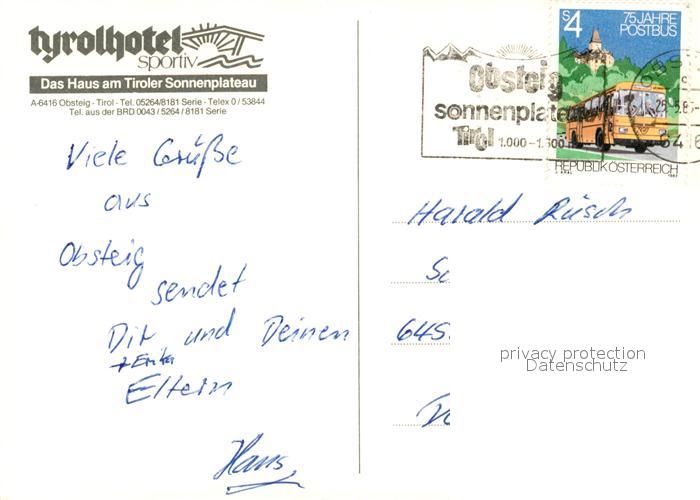 tyrolhotel
sportiv
Das Haus am Tiroler Sonnenplateau
A-6416 Obsteig · Tirol · Tel. 05264/8181 Serie · Telex 0 / 53844
Tel. aus der BRD 0043 / 5264 / 8181 Serie
Viele Grüße
aus
Obsteig
sendet
Dir und Deinen
+ Erika
Eltern
Hans
Obsteig
sonnenplateau
Tirol 1.000 -
S 4
75 JAHRE
POSTBUS
REPUBLIK ÖSTERREICH
Harald Rüsch
645
privacy protection
Datenschutz